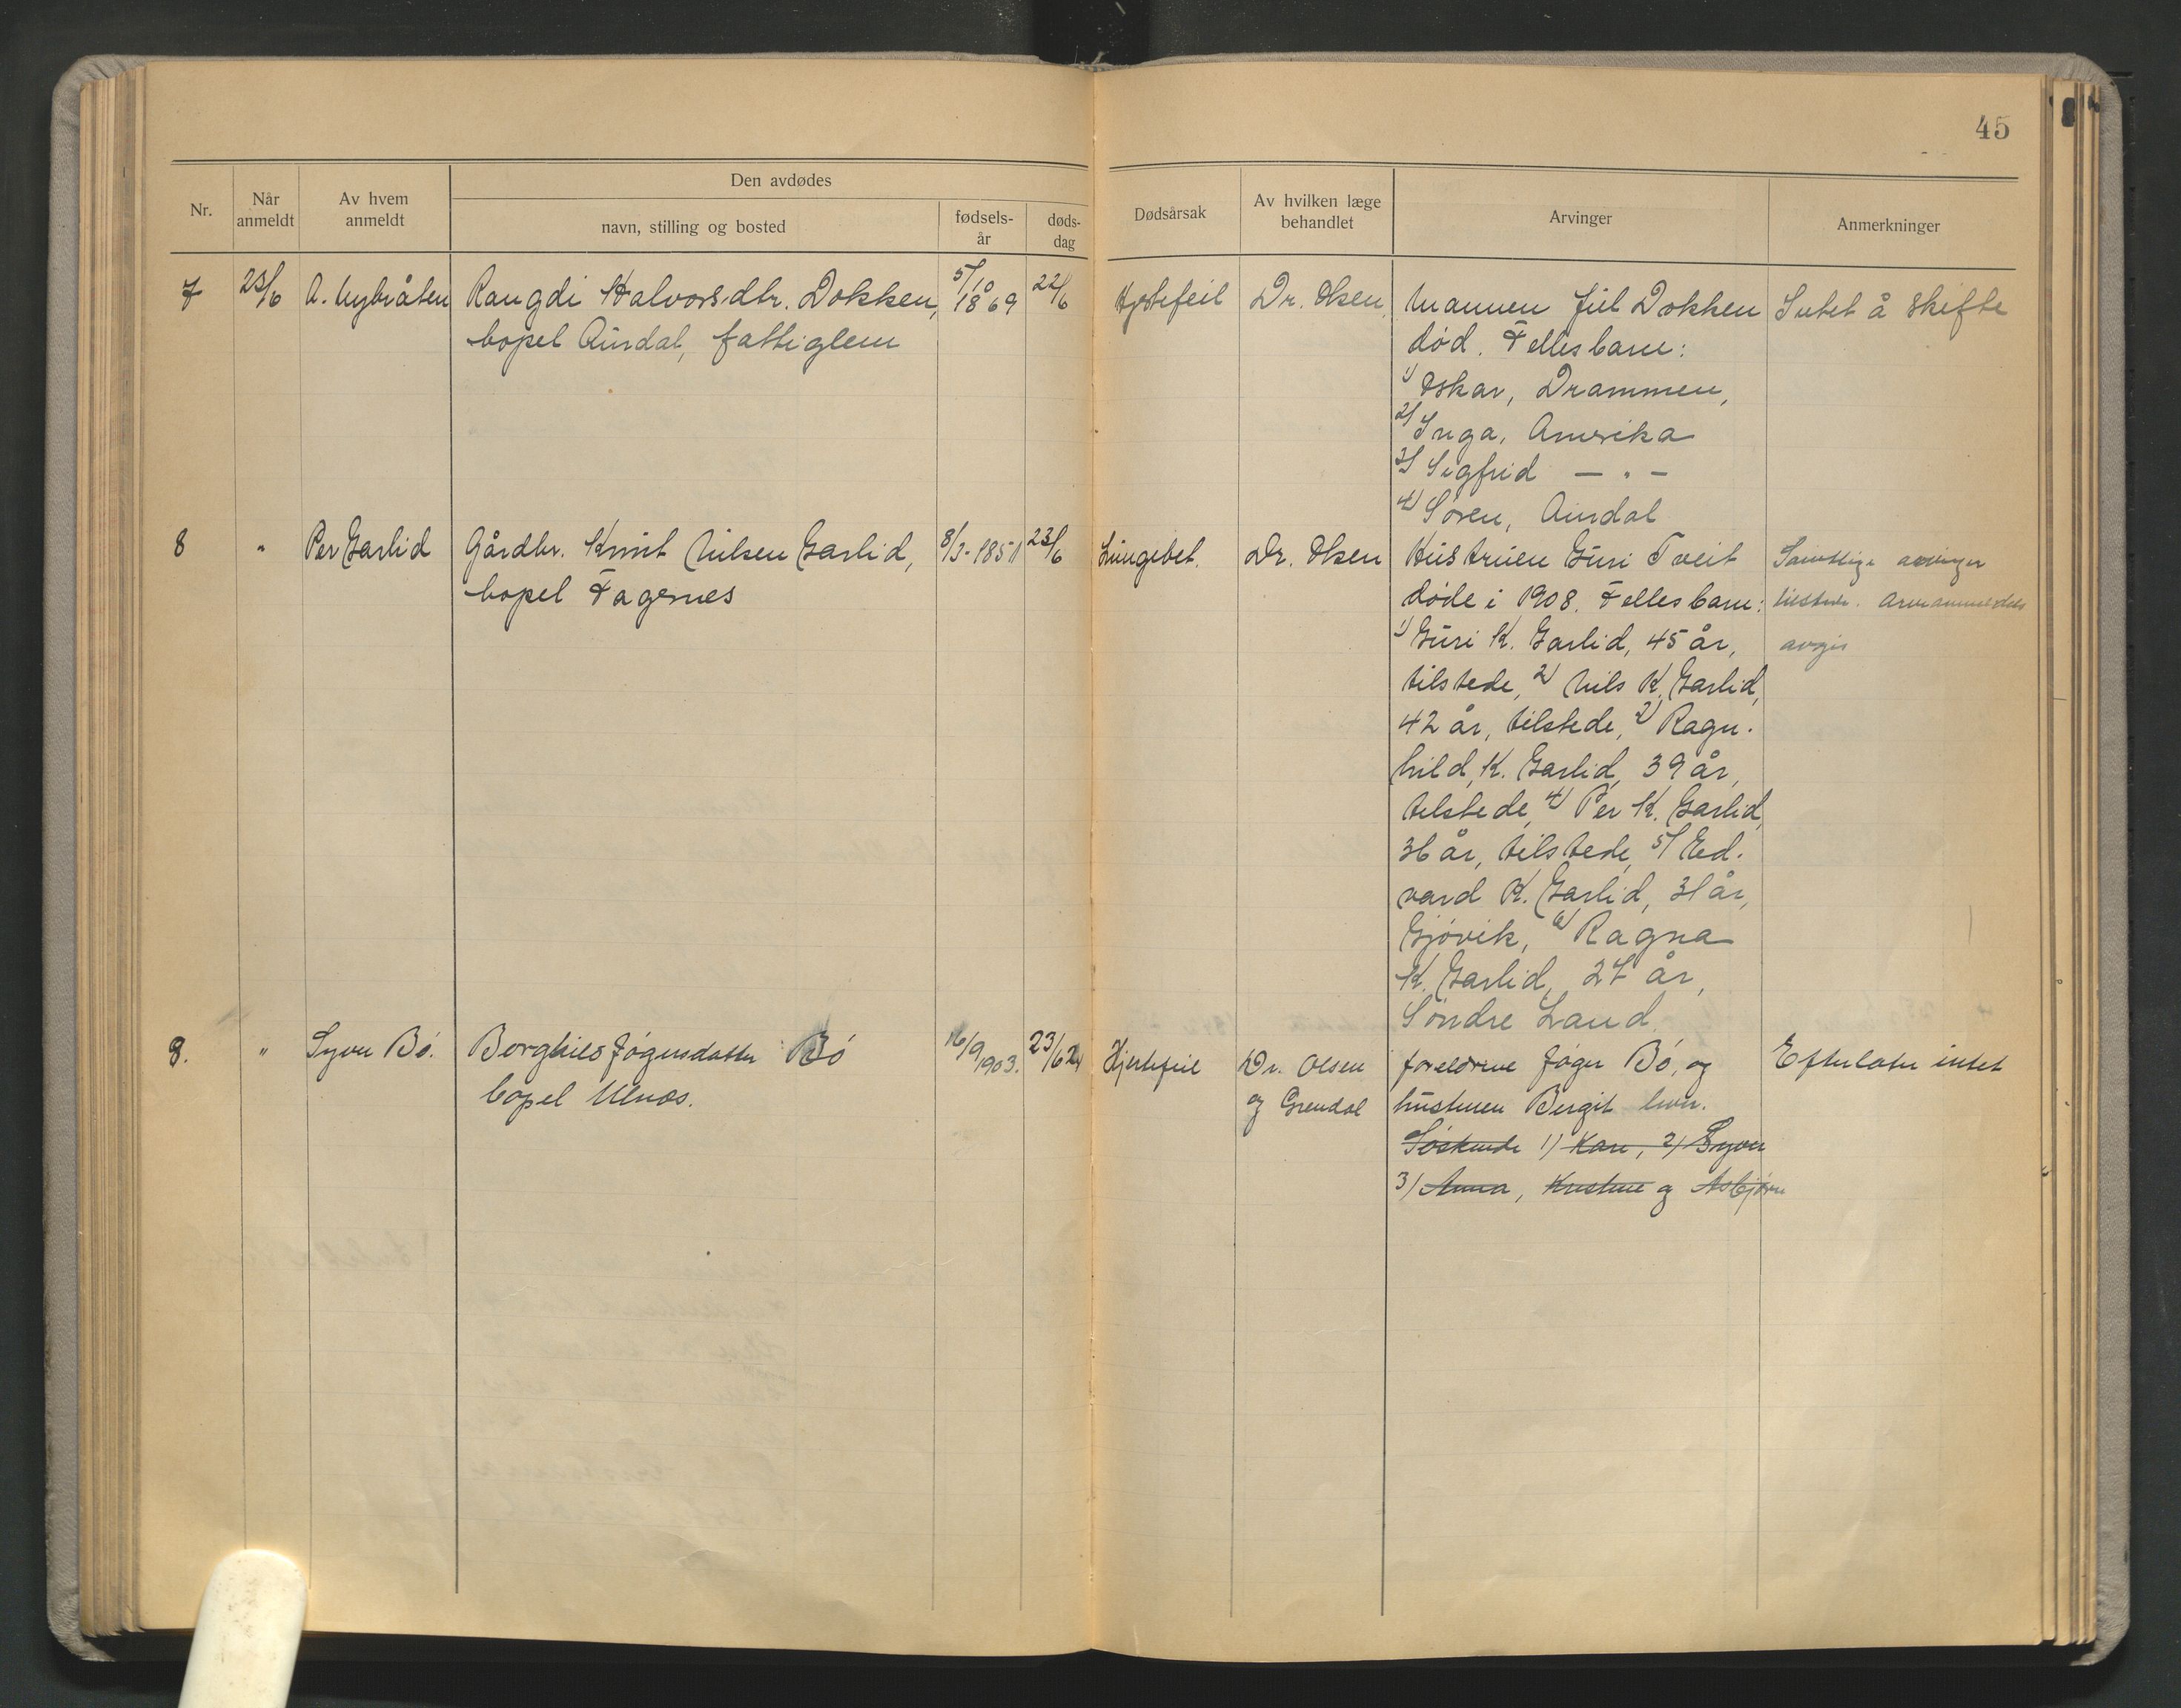 45
Nr.
Når anmeldt
Av hvem anmeldt
Den avdødes
navn, stilling og bosted
fødsels-år
døds-dag
Dødsårsak
Av hvilken læge behandlet
Arvinger
Anmerkninger
7
23/6
A. Nybråten
Rangdi Halvorsdtr. Dokken,
bopel Aurdal, fattiglem
5/10 1869
22/6
Hjertefeil
Dr. Olsen,
Mannen Jul Dokken
død. Fellesbarn:
1) Oskar, Drammen,
2) Inga, Amerika
3) Sigfrid — " —
4) Søren, Aurdal
Intet å skifte
8
"
Per Garlid
Gårdbr. Knut Nilsen Garlid,
bopel Fagernes
8/3-1851
23/6
Lungebet.
Dr. Olsen
Hustruen Guri Tveit
døde i 1908. Fellesbarn:
1) Guri K. Garlid, 45 år,
tilstede, 2) Nils K. Garlid,
42 år, tilstede, 2) Ragn-
hild, K. Garlid, 39 år,
tilstede, 4) Per K. Garlid,
36 år, tilstede, 5) Ed-
vard K. Garlid, 31 år,
Gjøvik, 6) Ragna
K. Garlid, 27 år,
Søndre Land.
Samtlige arvinger
tilstede.
avgis
9.
"
Syver Bø.
Borghild Jøgersdatter Bø
bopel Ulnes.
16/9 1903.
23/6 24
Hjertefeil
Dr. Olsen
og Grendal
foreldrene Jøger Bø, og
hustruen Bergit lever.
Søskende 1) Kari, 2) Syver
3) Anna, Kristine og Asbjørn
Efterlater intet